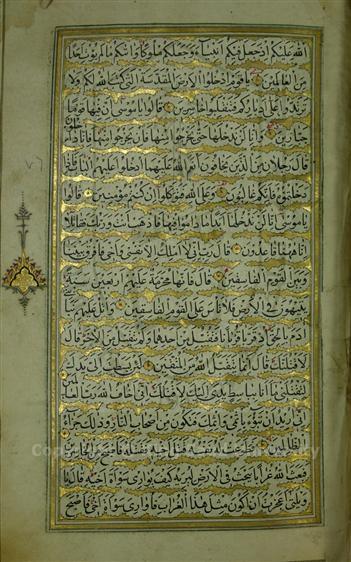 الله عليكم اذ جعل فيكم انبياء وجعلكم ملوكا واتيكم ما لم يؤت احدا
من العالمين يا قوم ادخلوا الارض المقدسة التي كتب الله لكم ولا
ترتدوا على ادباركم فتنقلبوا خاسرين قالوا يا موسى ان فيها قوما
جبارين وانا لن ندخلها حتى يخرجوا منها فان يخرجوا منها فانا داخلون
قال رجلان من الذين يخافون انعم الله عليهما ادخلوا عليهم الباب فاذا
دخلتموه فانكم غالبون وعلى الله فتوكلوا ان كنتم مؤمنين قالوا
يا موسى انا لن ندخلها ابدا ما داموا فيها فاذهب انت وربك فقاتلا
انا ههنا قاعدون قال رب اني لا املك الا نفسي واخي فافرق بيننا
وبين القوم الفاسقين قال فانها محرمة عليهم اربعين سنة
يتيهون في الارض فلا تاس على القوم الفاسقين واتل عليهم نبا
ابني ادم بالحق اذ قربا قربانا فتقبل من احدهما ولم يتقبل من الاخر قال
لاقتلنك قال انما يتقبل الله من المتقين لئن بسطت الي يدك
لتقتلني ما انا بباسط يدي اليك لاقتلك اني اخاف الله رب العالمين
اني اريد ان تبوء باثمي واثمك فتكون من اصحاب النار وذلك جزاء
الظالمين فطوعت له نفسه قتل اخيه فقتله فاصبح من الخاسرين
فبعث الله غرابا يبحث في الارض ليريه كيف يواري سواة اخيه قال يا
ويلتى اعجزت ان اكون مثل هذا الغراب فاواري سواة اخي فاصبح